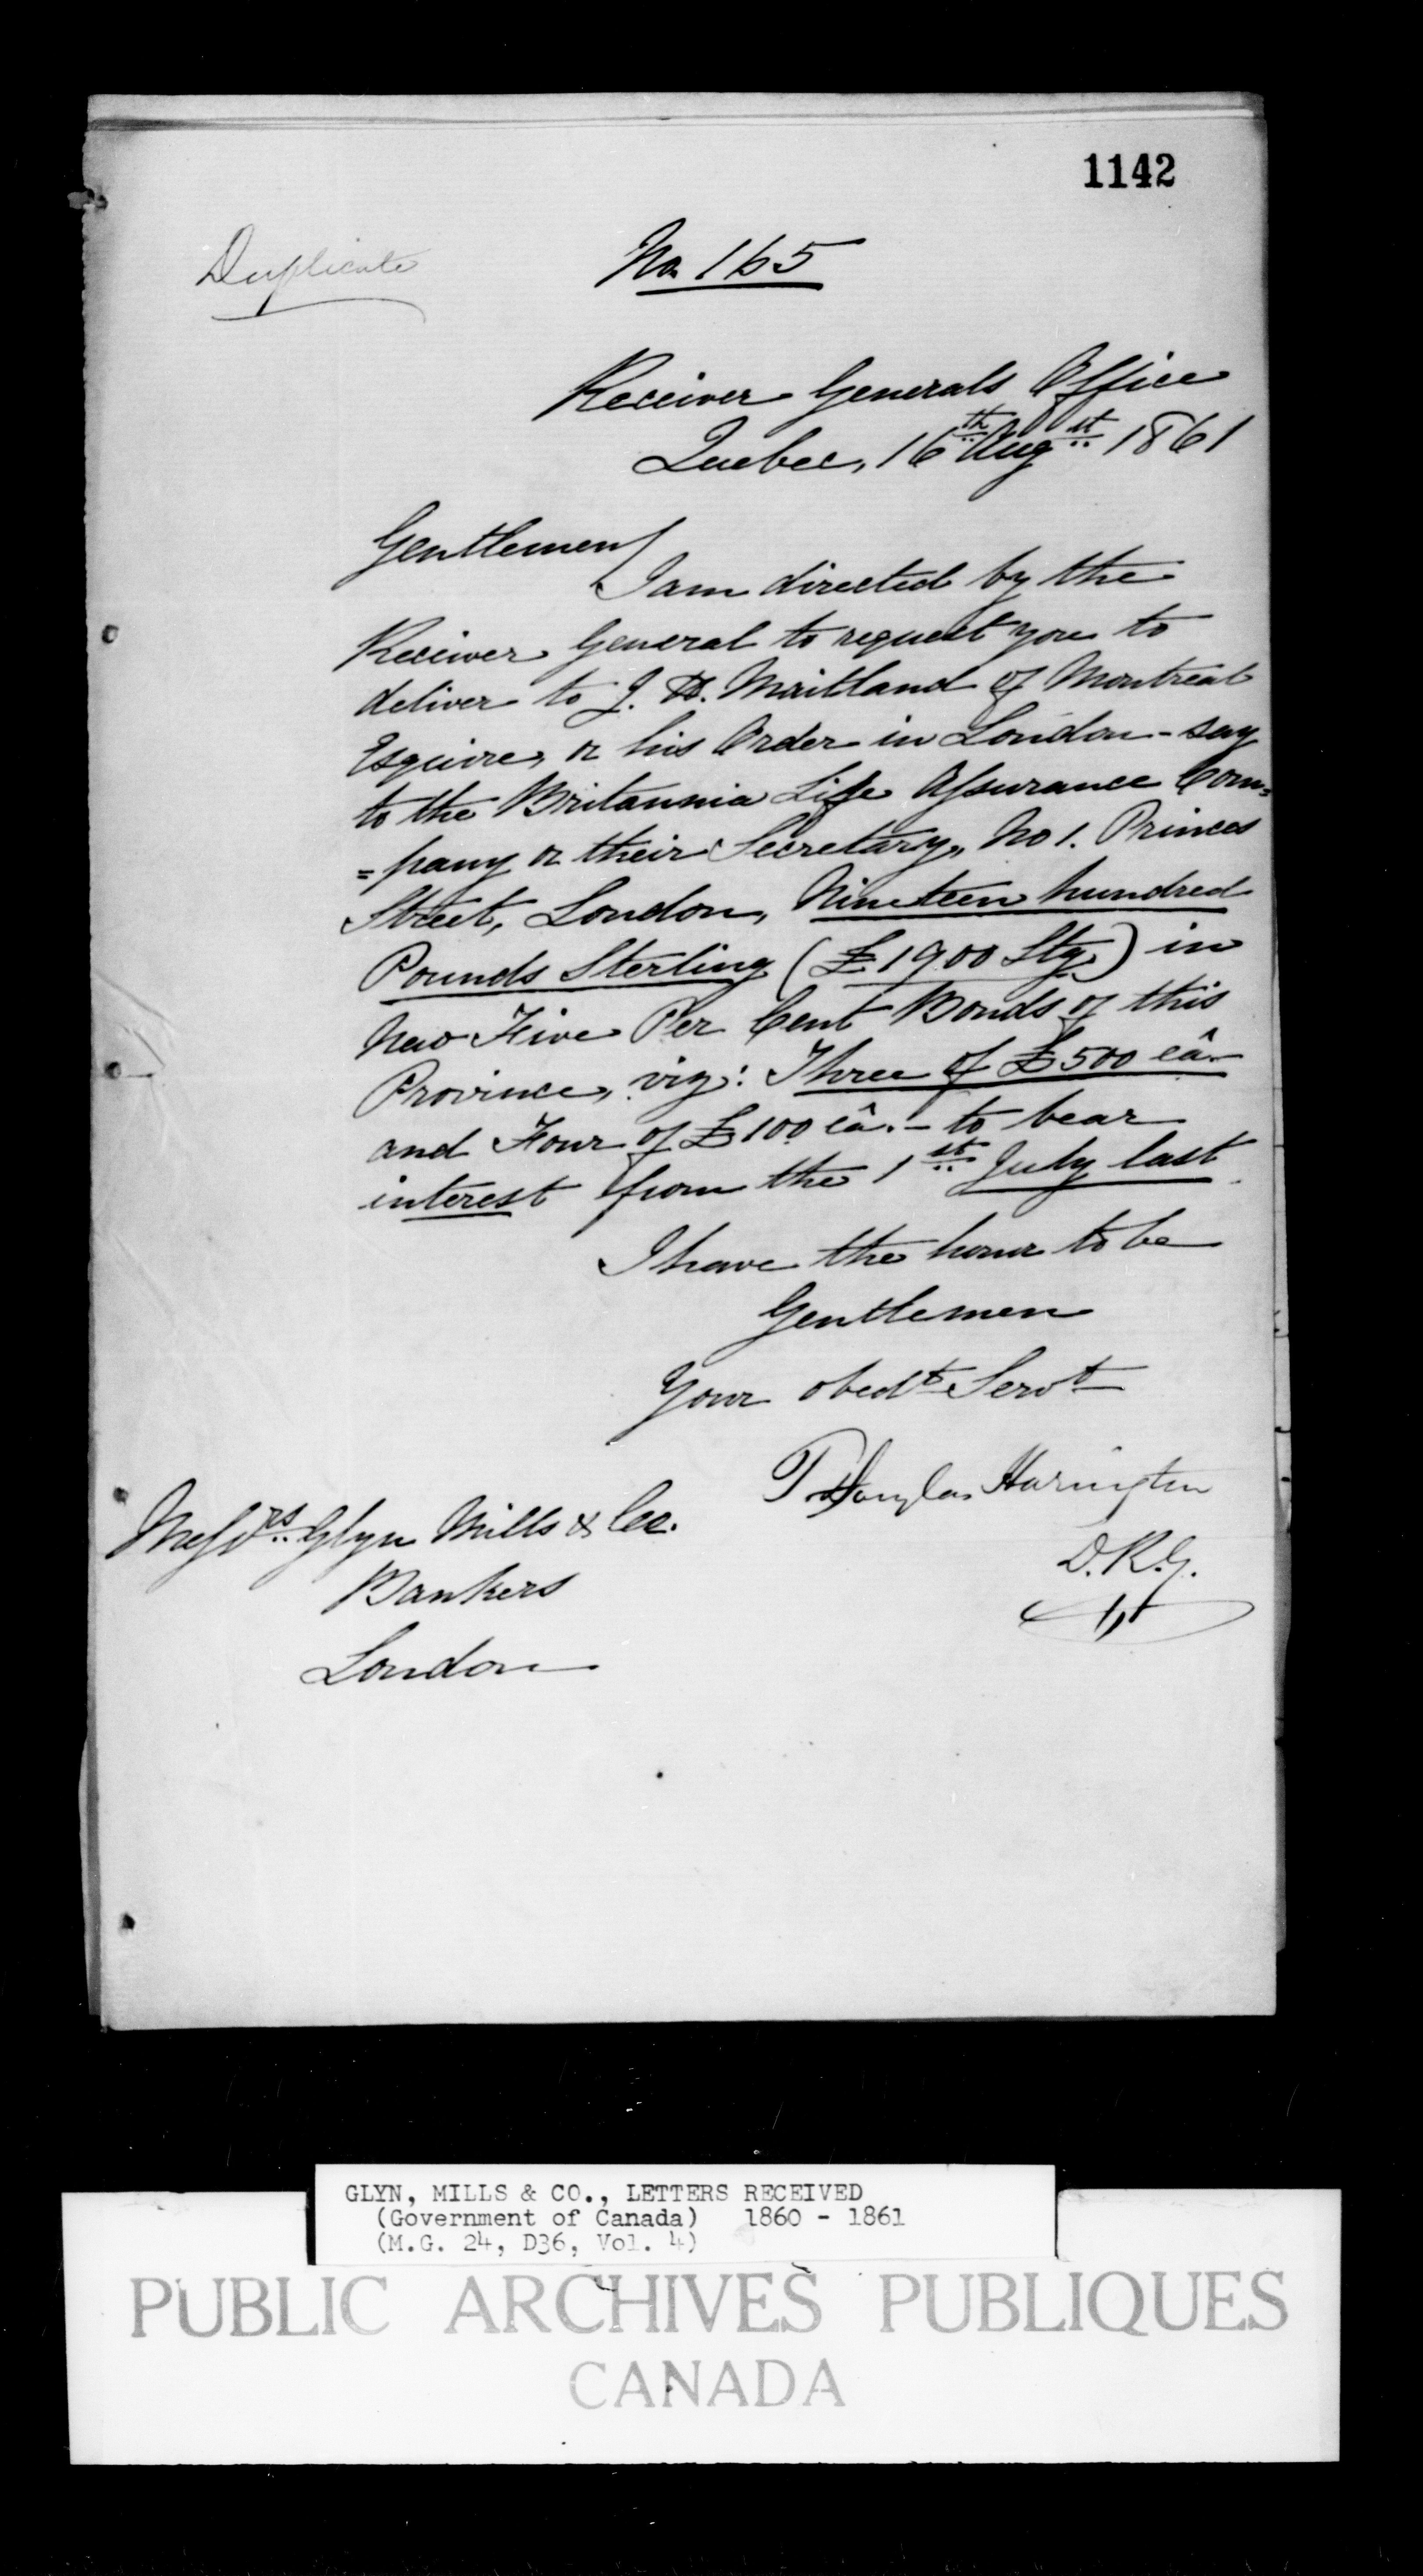 1142
Duplicate
No. 165
Receiver Generals Office
Quebec, 16th Augst 1861
Gentlemen
I am directed by the
Receiver General to request you to
deliver to J. H. Maitland of Montreal
Esquire, or his Order in London - say
to the Britannia Life Assurance Com=
=pany or their Secretary, No 1. Princes
Street, London, Nineteen hundred
Pounds Sterling (£1900 Stg.) in
New Five Per Cent Bonds of this
Province, viz: Three of £500 eâ. -
and Four of £100 eâ. - to bear
interest from the 1st July last.
I have the honor to be
Gentlemen
Your obedt Servt
T. Douglas Harington
D.R.G.
Messrs. Glyn Mills & Co.
Bankers
London
GLYN, MILLS & CO., LETTERS RECEIVED
(Government of Canada) 1860 - 1861
(M.G. 24, D36, Vol. 4)
PUBLIC ARCHIVES PUBLIQUES
CANADA